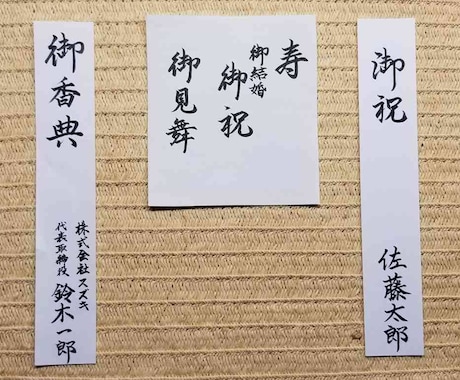 御祝
佐藤太郎
寿
御結婚
御祝
御見舞
御香典
株式会社スズキ
代表取締役 鈴木一郎